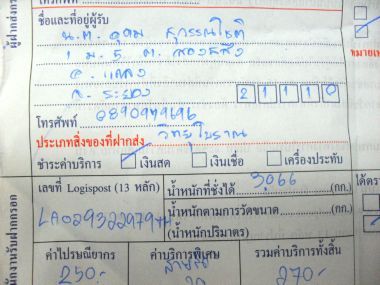 โทรศัพท์
ชื่อและที่อยู่ผู้รับ
น.ต. อุดม สุวรรณโชติ
1 ม. 5 ต. สองสลึง
อ. แกลง
จ. ระยอง 21110
โทรศัพท์ 0890949696
ประเภทสิ่งของที่ฝากส่ง วิทยุโบราณ
ชำระค่าบริการ เงินสด เงินเชื่อ เครื่องประทับ
เลขที่ Logispost (13 หลัก) น้ำหนักที่ชั่งได้ 3,066 (กก.)
น้ำหนักตามการวัดขนาด (กก.)
(น้ำหนักปริมาตร)
ค่าไปรษณียากร ค่าบริการพิเศษ รวมค่าบริการทั้งสิ้น
250.- 20 270.-